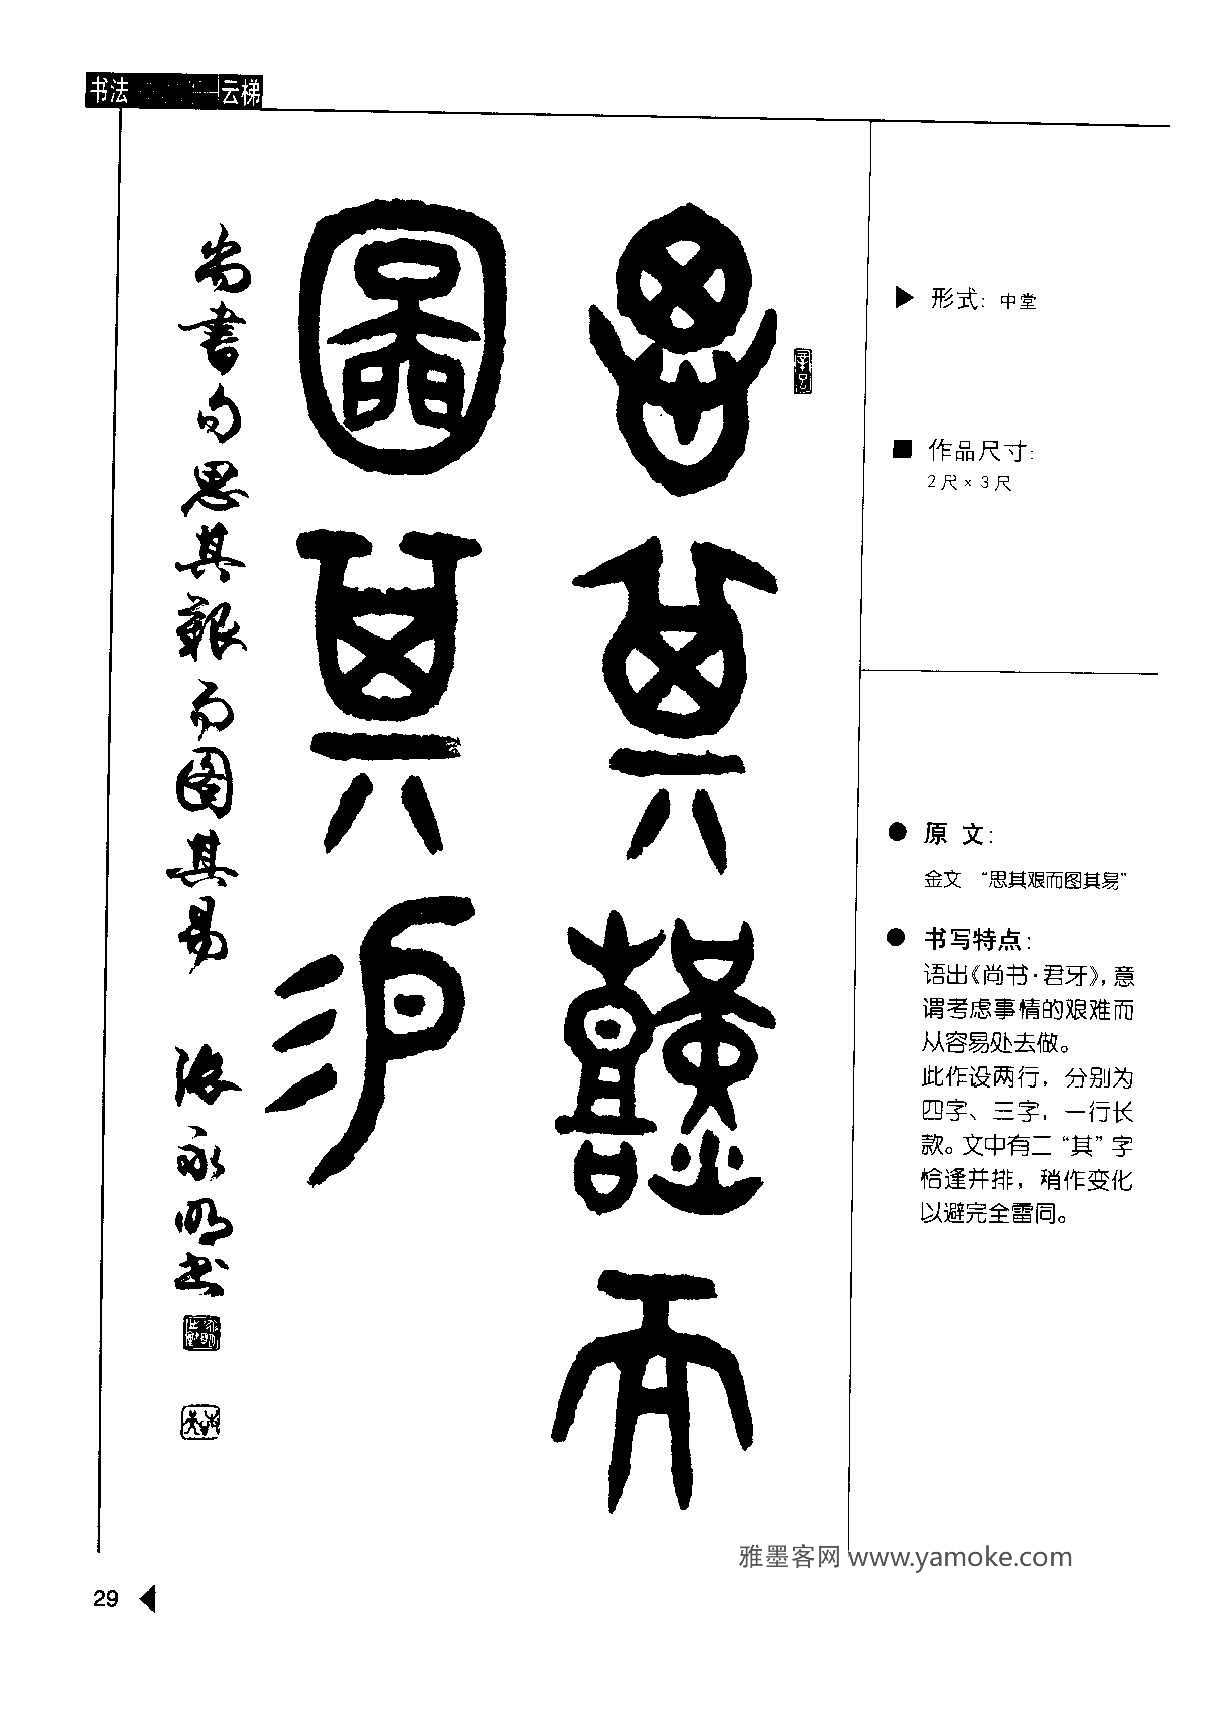 书法
云梯
思其艱而
圖其易
尚書句思其艱而圖其易 張永明书
形式：中堂
作品尺寸：
2尺×3尺
原 文：
金文 “思其艰而图其易”
书写特点：
语出《尚书·君牙》，意
谓考虑事情的艰难而
从容易处去做。
此作设两行，分别为
四字、三字，一行长
款。文中有二“其”字
恰逢并排，稍作变化
以避完全雷同。
雅墨客网 www.yamoke.com
29